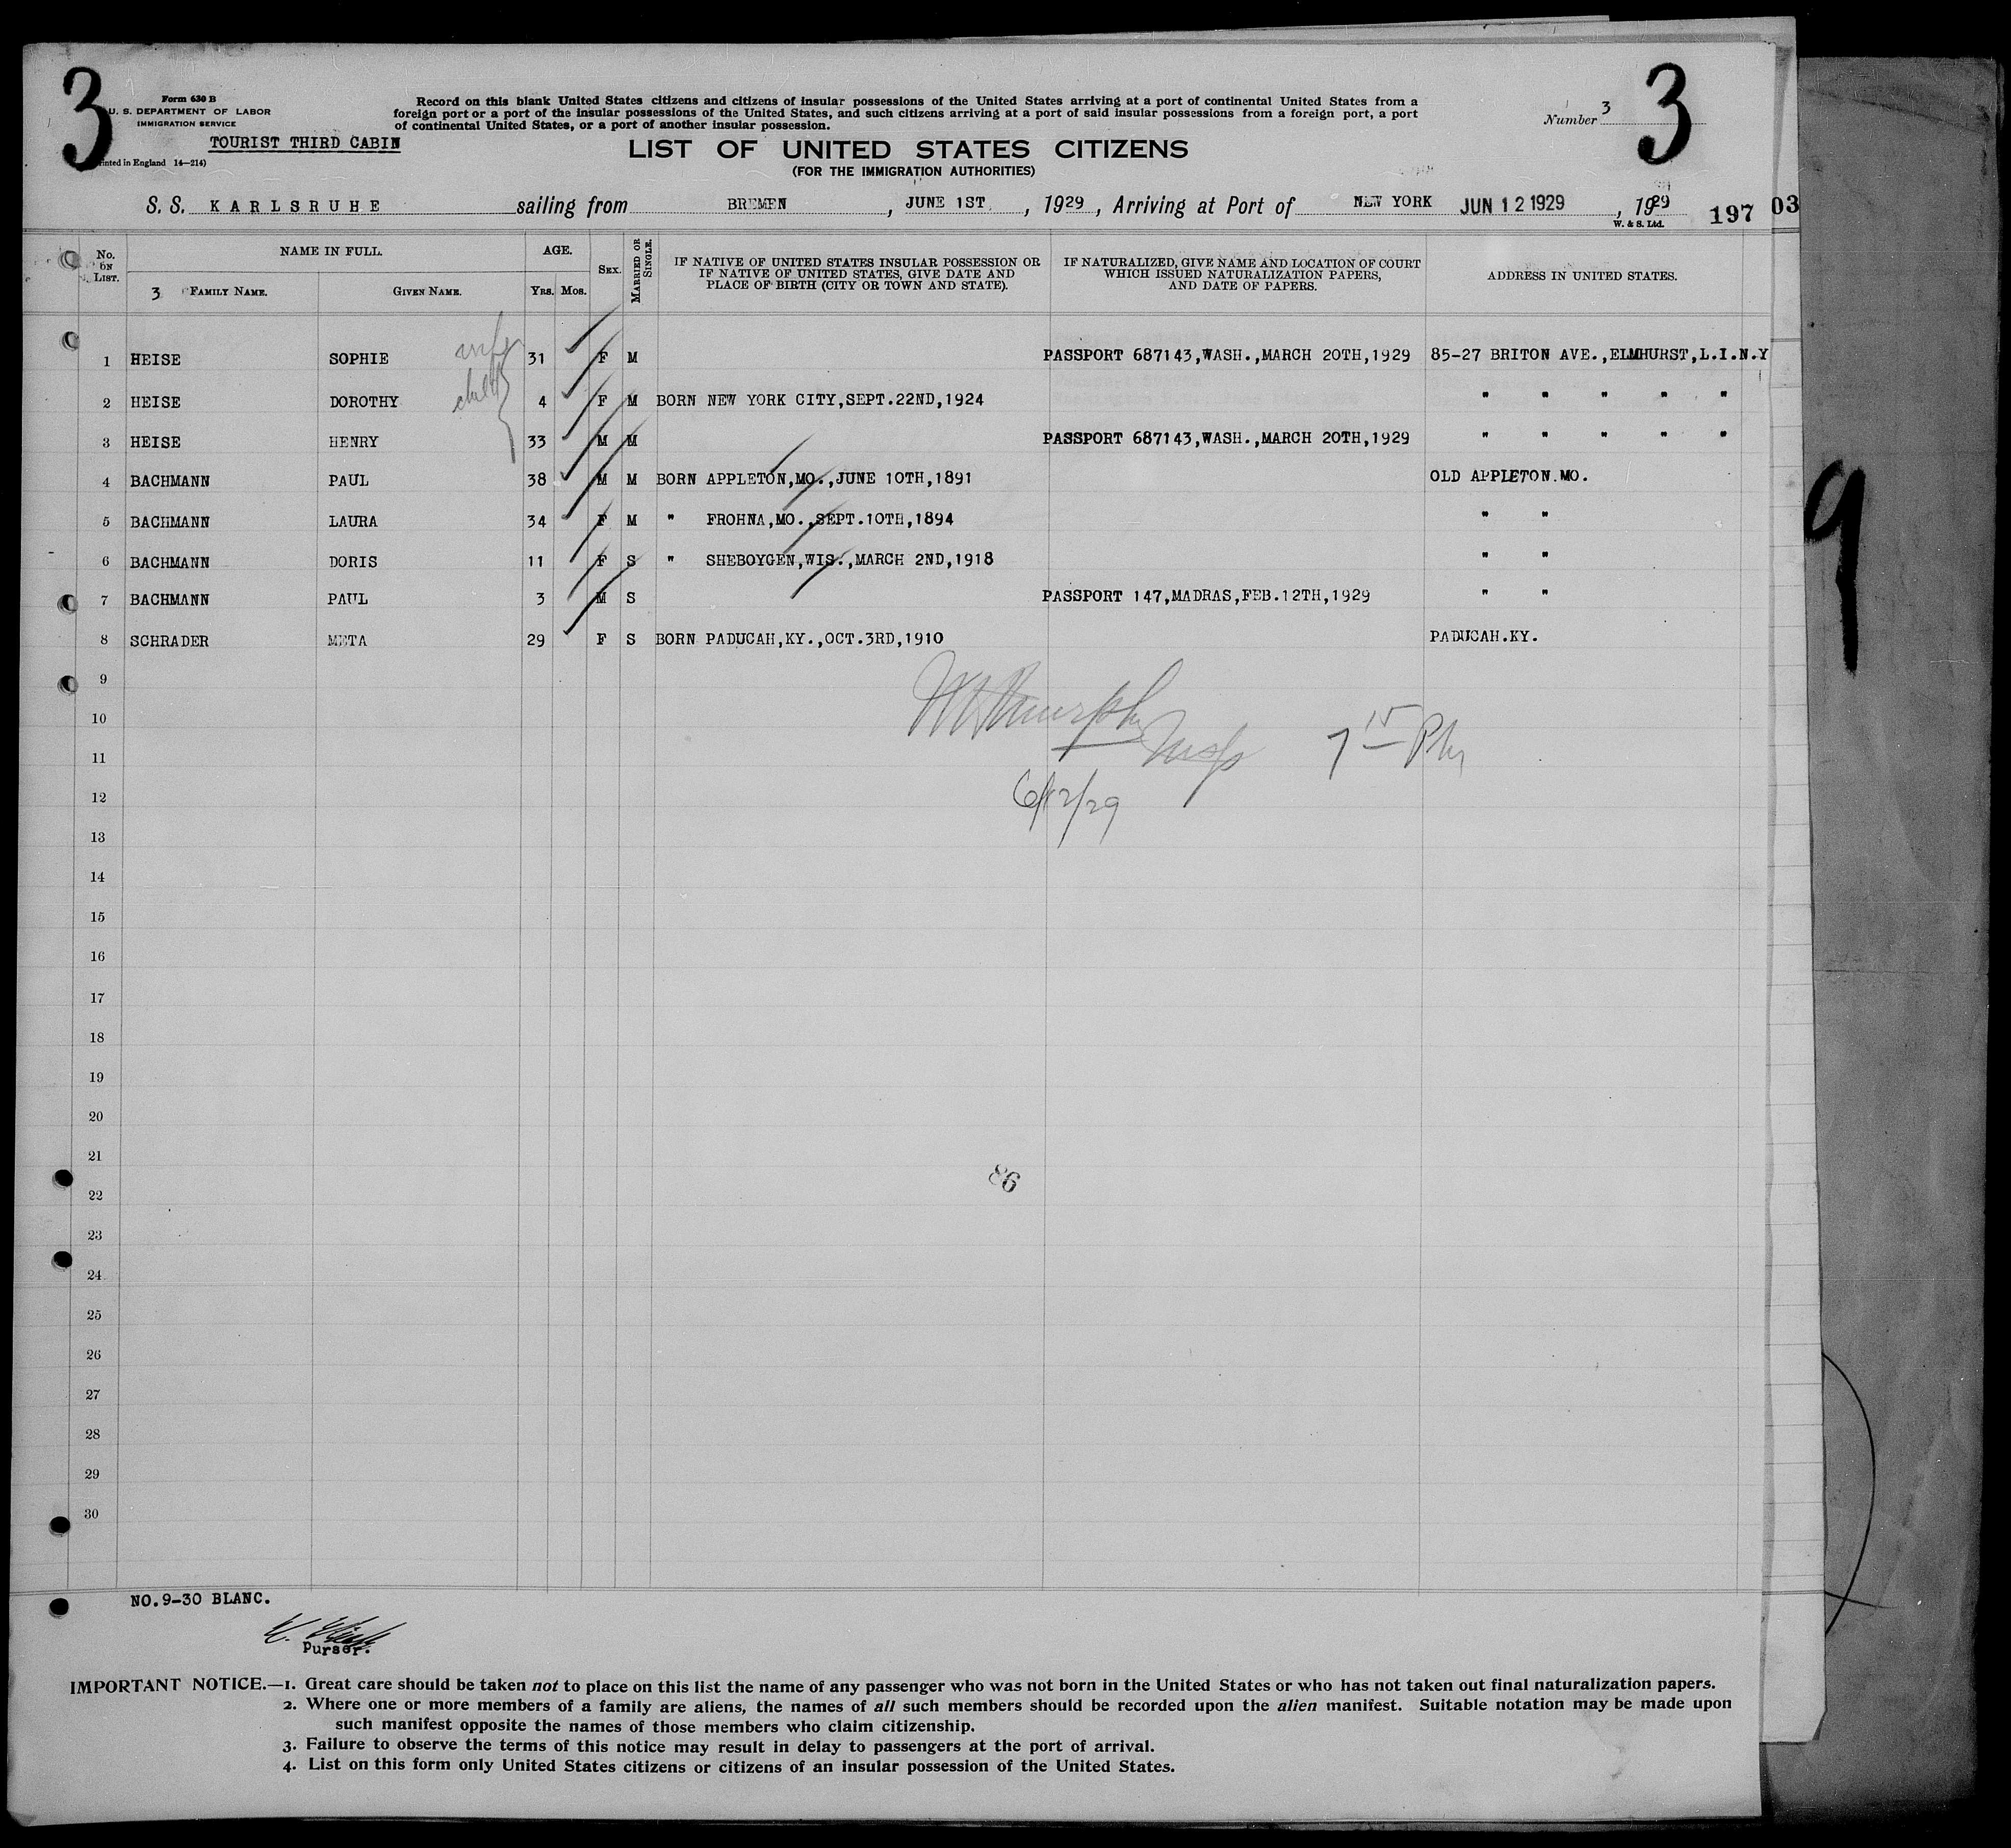 3
Form 630 B
U. S. DEPARTMENT OF LABOR
IMMIGRATION SERVICE
TOURIST THIRD CABIN
inted in England 14—214)
Record on this blank United States citizens and citizens of insular possessions of the United States arriving at a port of continental United States from a
foreign port or a port of the insular possessions of the United States, and such citizens arriving at a port of said insular possessions from a foreign port, a port
of continental United States, or a port of another insular possession.
Number 3
3
LIST OF UNITED STATES CITIZENS
(FOR THE IMMIGRATION AUTHORITIES)
S. S. KARLSRUHE sailing from BREMEN, JUNE 1ST, 1929, Arriving at Port of NEW YORK JUN 12 1929, 1929
W. & S. Ltd.
197 03
No. ON LIST. NAME IN FULL. AGE. SEX. MARRIED OR SINGLE. IF NATIVE OF UNITED STATES INSULAR POSSESSION OR IF NATIVE OF UNITED STATES, GIVE DATE AND PLACE OF BIRTH (CITY OR TOWN AND STATE). IF NATURALIZED, GIVE NAME AND LOCATION OF COURT WHICH ISSUED NATURALIZATION PAPERS, AND DATE OF PAPERS. ADDRESS IN UNITED STATES.
3 FAMILY NAME. GIVEN NAME. YRS. MOS.
1 HEISE SOPHIE wife 31 F M PASSPORT 687143,WASH.,MARCH 20TH,1929 85-27 BRITON AVE.,ELMHURST,L.I.N.Y
2 HEISE DOROTHY child 4 F M BORN NEW YORK CITY,SEPT.22ND,1924 " " " " "
3 HEISE HENRY 33 M M PASSPORT 687143,WASH.,MARCH 20TH,1929 " " " " "
4 BACHMANN PAUL 38 M M BORN APPLETON,MO.,JUNE 10TH,1891 OLD APPLETON.MO.
5 BACHMANN LAURA 34 F M " FROHNA,MO.,SEPT.10TH,1894 " "
6 BACHMANN DORIS 11 F S " SHEBOYGEN,WIS.,MARCH 2ND,1918 " "
7 BACHMANN PAUL 3 M S PASSPORT 147,MADRAS,FEB.12TH,1929 " "
8 SCHRADER META 29 F S BORN PADUCAH,KY.,OCT.3RD,1910 PADUCAH.KY.
9
10
Murphy
Insp 7 15 PM
11
12
6/12/29
13
14
15
16
17
18
19
20
21
86
22
23
24
25
26
27
28
29
30
9
NO.9-30 BLANC.
Purser.
IMPORTANT NOTICE.—1. Great care should be taken not to place on this list the name of any passenger who was not born in the United States or who has not taken out final naturalization papers.
2. Where one or more members of a family are aliens, the names of all such members should be recorded upon the alien manifest. Suitable notation may be made upon
such manifest opposite the names of those members who claim citizenship.
3. Failure to observe the terms of this notice may result in delay to passengers at the port of arrival.
4. List on this form only United States citizens or citizens of an insular possession of the United States.